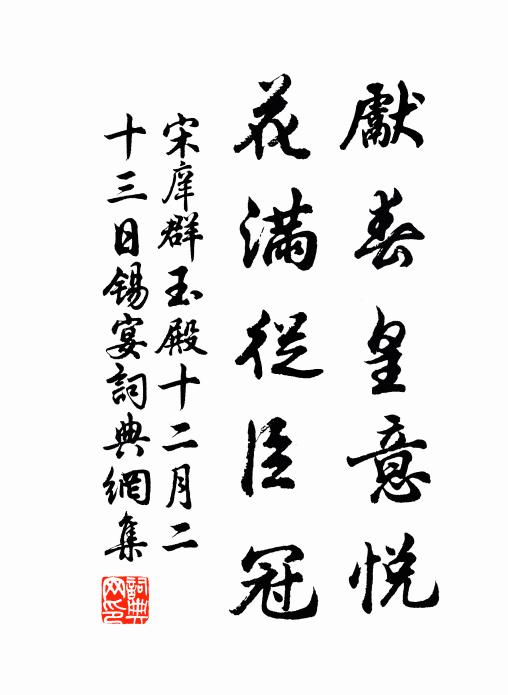 獻春皇意悅
花滿從臣冠
宋庠群玉殿十二月二
十三日錫宴詞典網集
詞典
网印